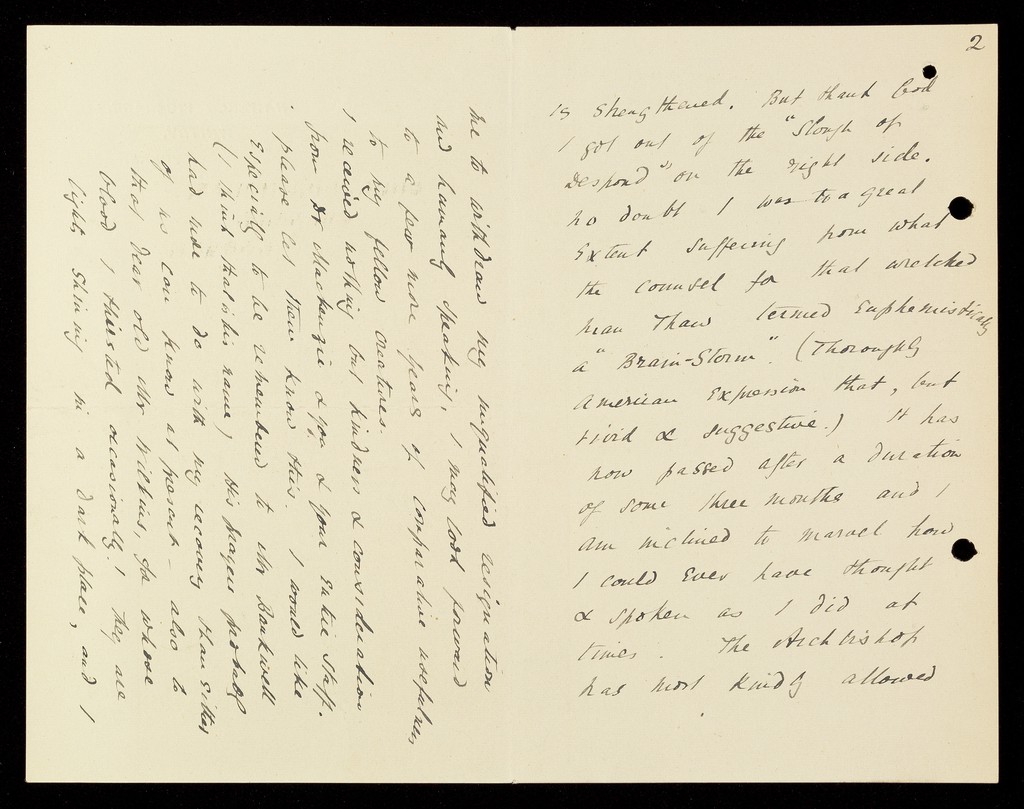 2
is strengthened. But thank God
I got out of the "Slough of
Despond" on the right side.
No doubt I was to a great
Extent suffering from what
the counsel for that wretched
man Thaw termed Euphemistically
a "Brain-Storm". (Thoroughly
American Expression that, but
vivid & suggestive.) It has
now passed after a duration
of some three months and I
am inclined to marvel how
I could Ever have thought
& spoken as I did at
times. The Archbishop
has most kindly allowed
me to withdraw my unqualified resignation
and humanly speaking, I may look forward
to a few more years of comparative usefulness
to my fellow creatures.
I received nothing but kindness & consideration
from Dr Mackenzie & you & your Entire Staff.
Please let them know this. I would like
Especially to be remembered to Mr Bankwell
(I think that is his name) His prayers probably
had more to do with my recovery than Either
of us can know at present – also to
that dear old Mr Wilkins, for whose
blood I thirsted occasionally! They are
lights shining in a dark place, and I